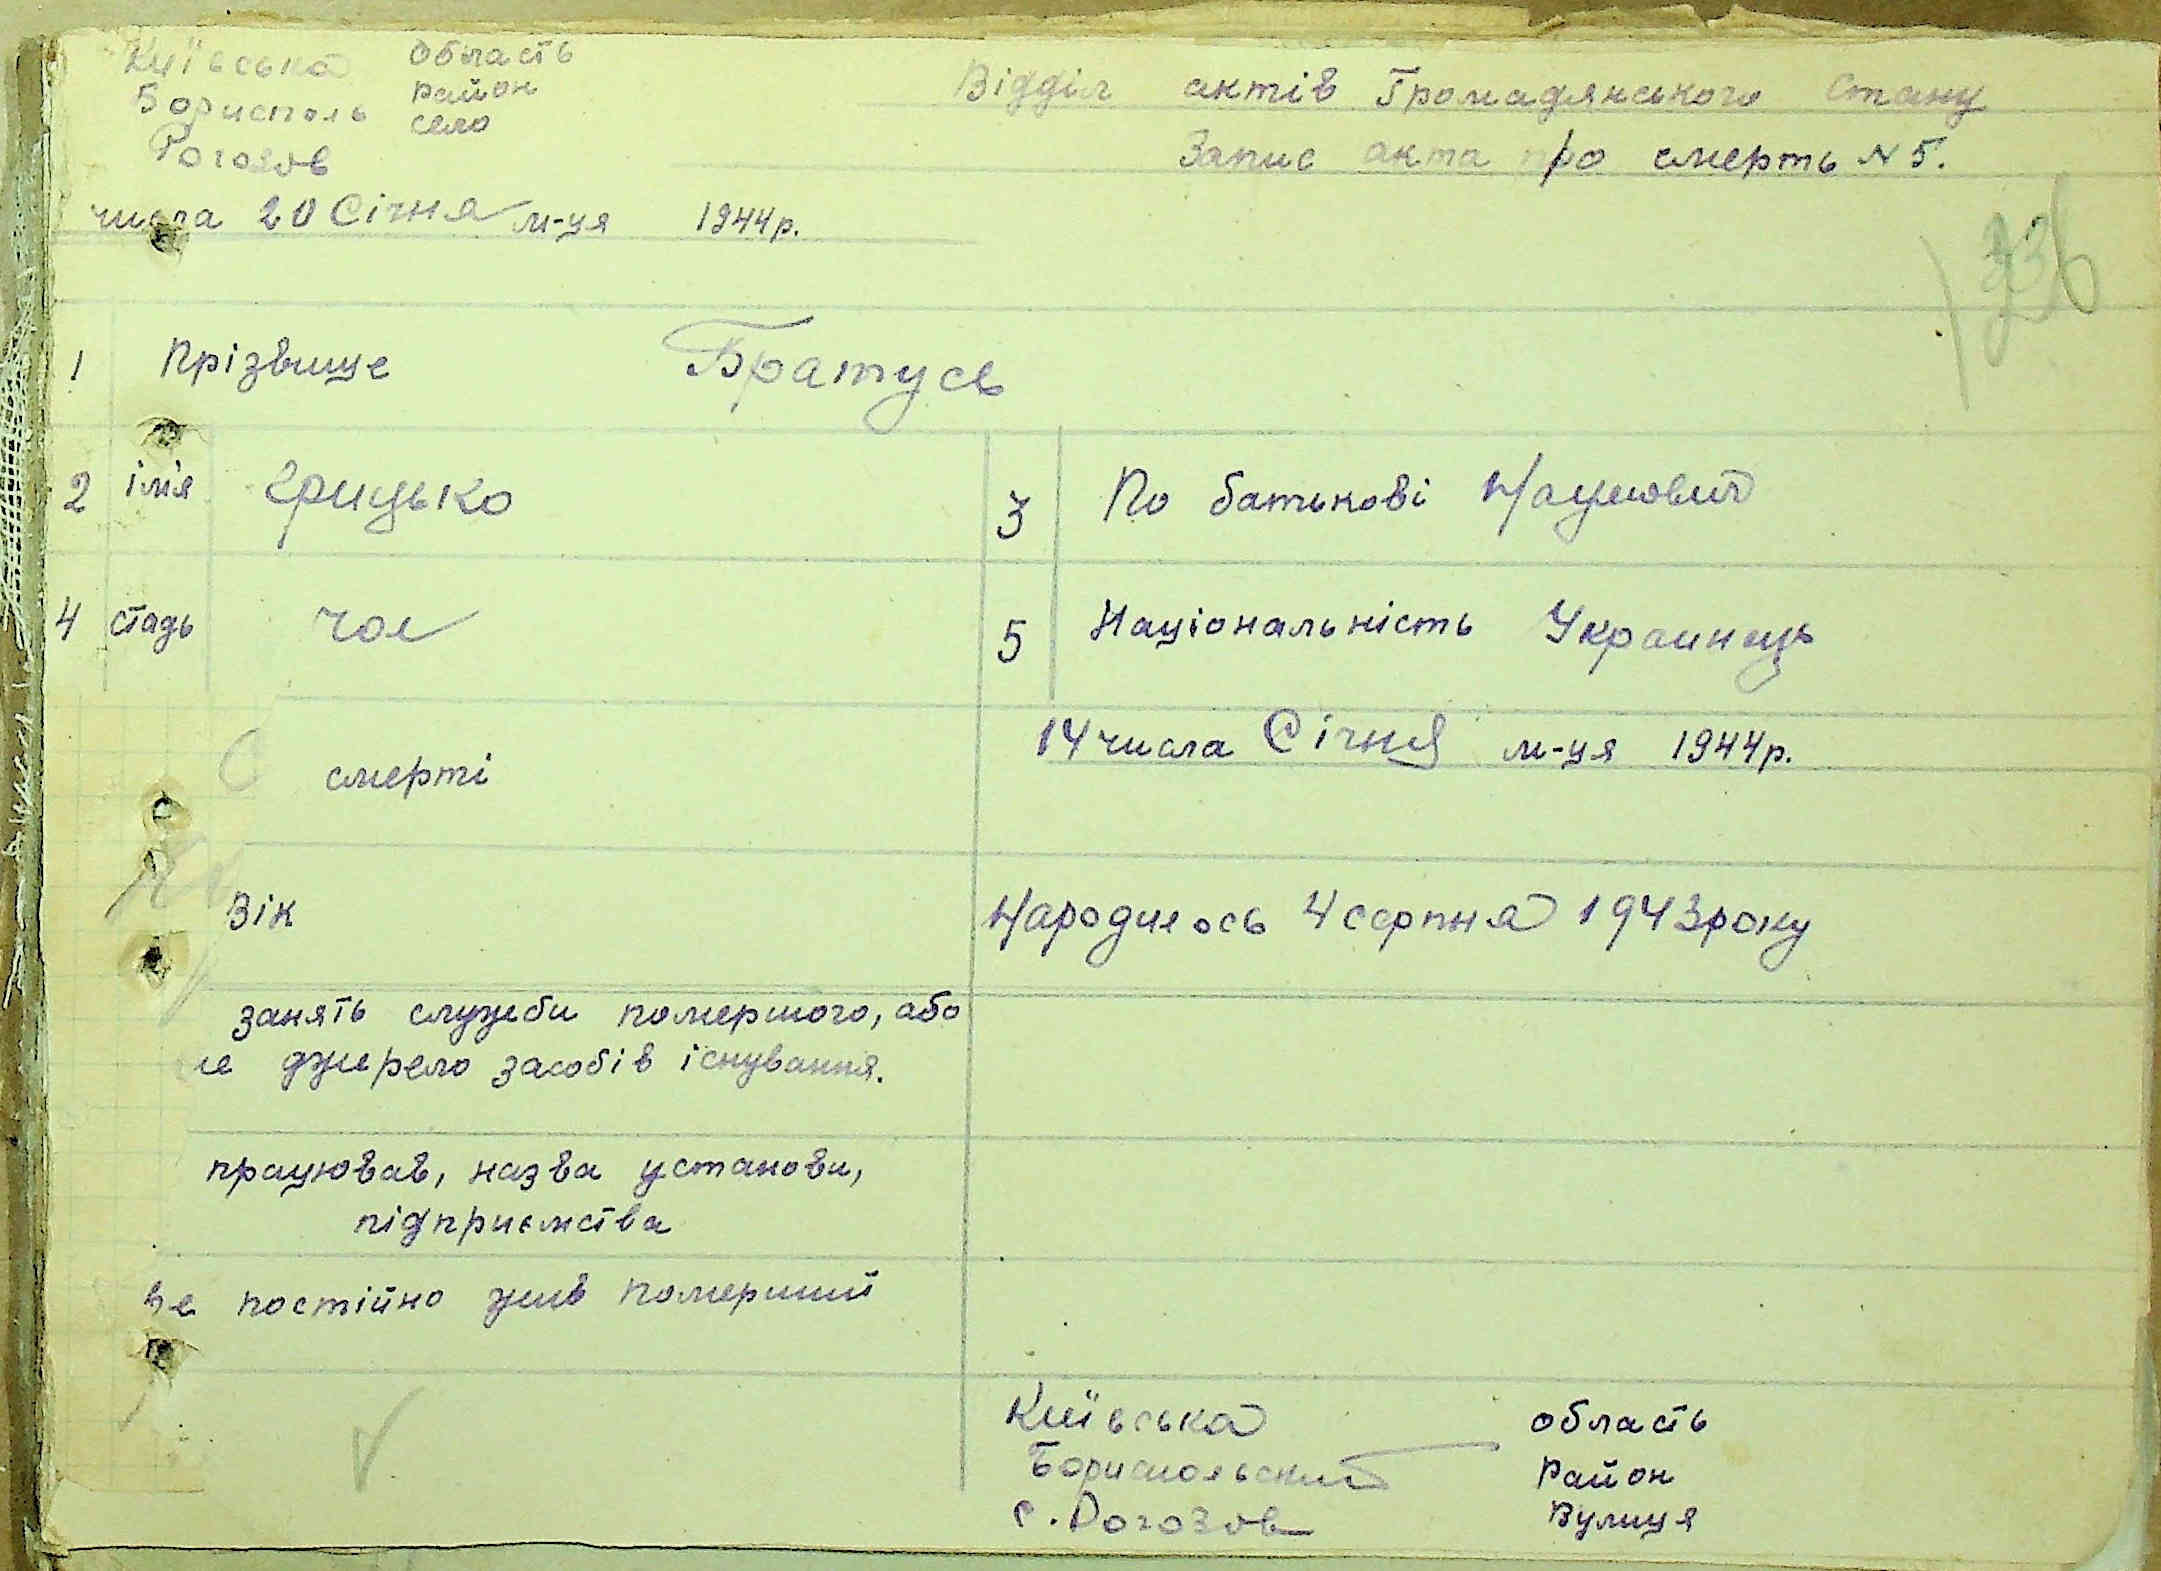 Київська область
Борисполь район
Рогозов село
Відділ актів Громадянського Стану
Запис акта про смерть N 5.
числа 20 Січня м-ця 1944р.
336
1 Прізвище Братусь
2 ім'я Грицько
3 По батькові Наумович
4 стадь чол
5 Національність Украинець
смерті 14 числа Січня м-ця 1944р.
Вік Народилось 4 серпня 1943 року
занять служби помершого, або
джерело засобів існування.
працював, назва установи,
підприємства
постійно жив померший
Київська область
Бориспольский район
с. Рогозов Вулиця